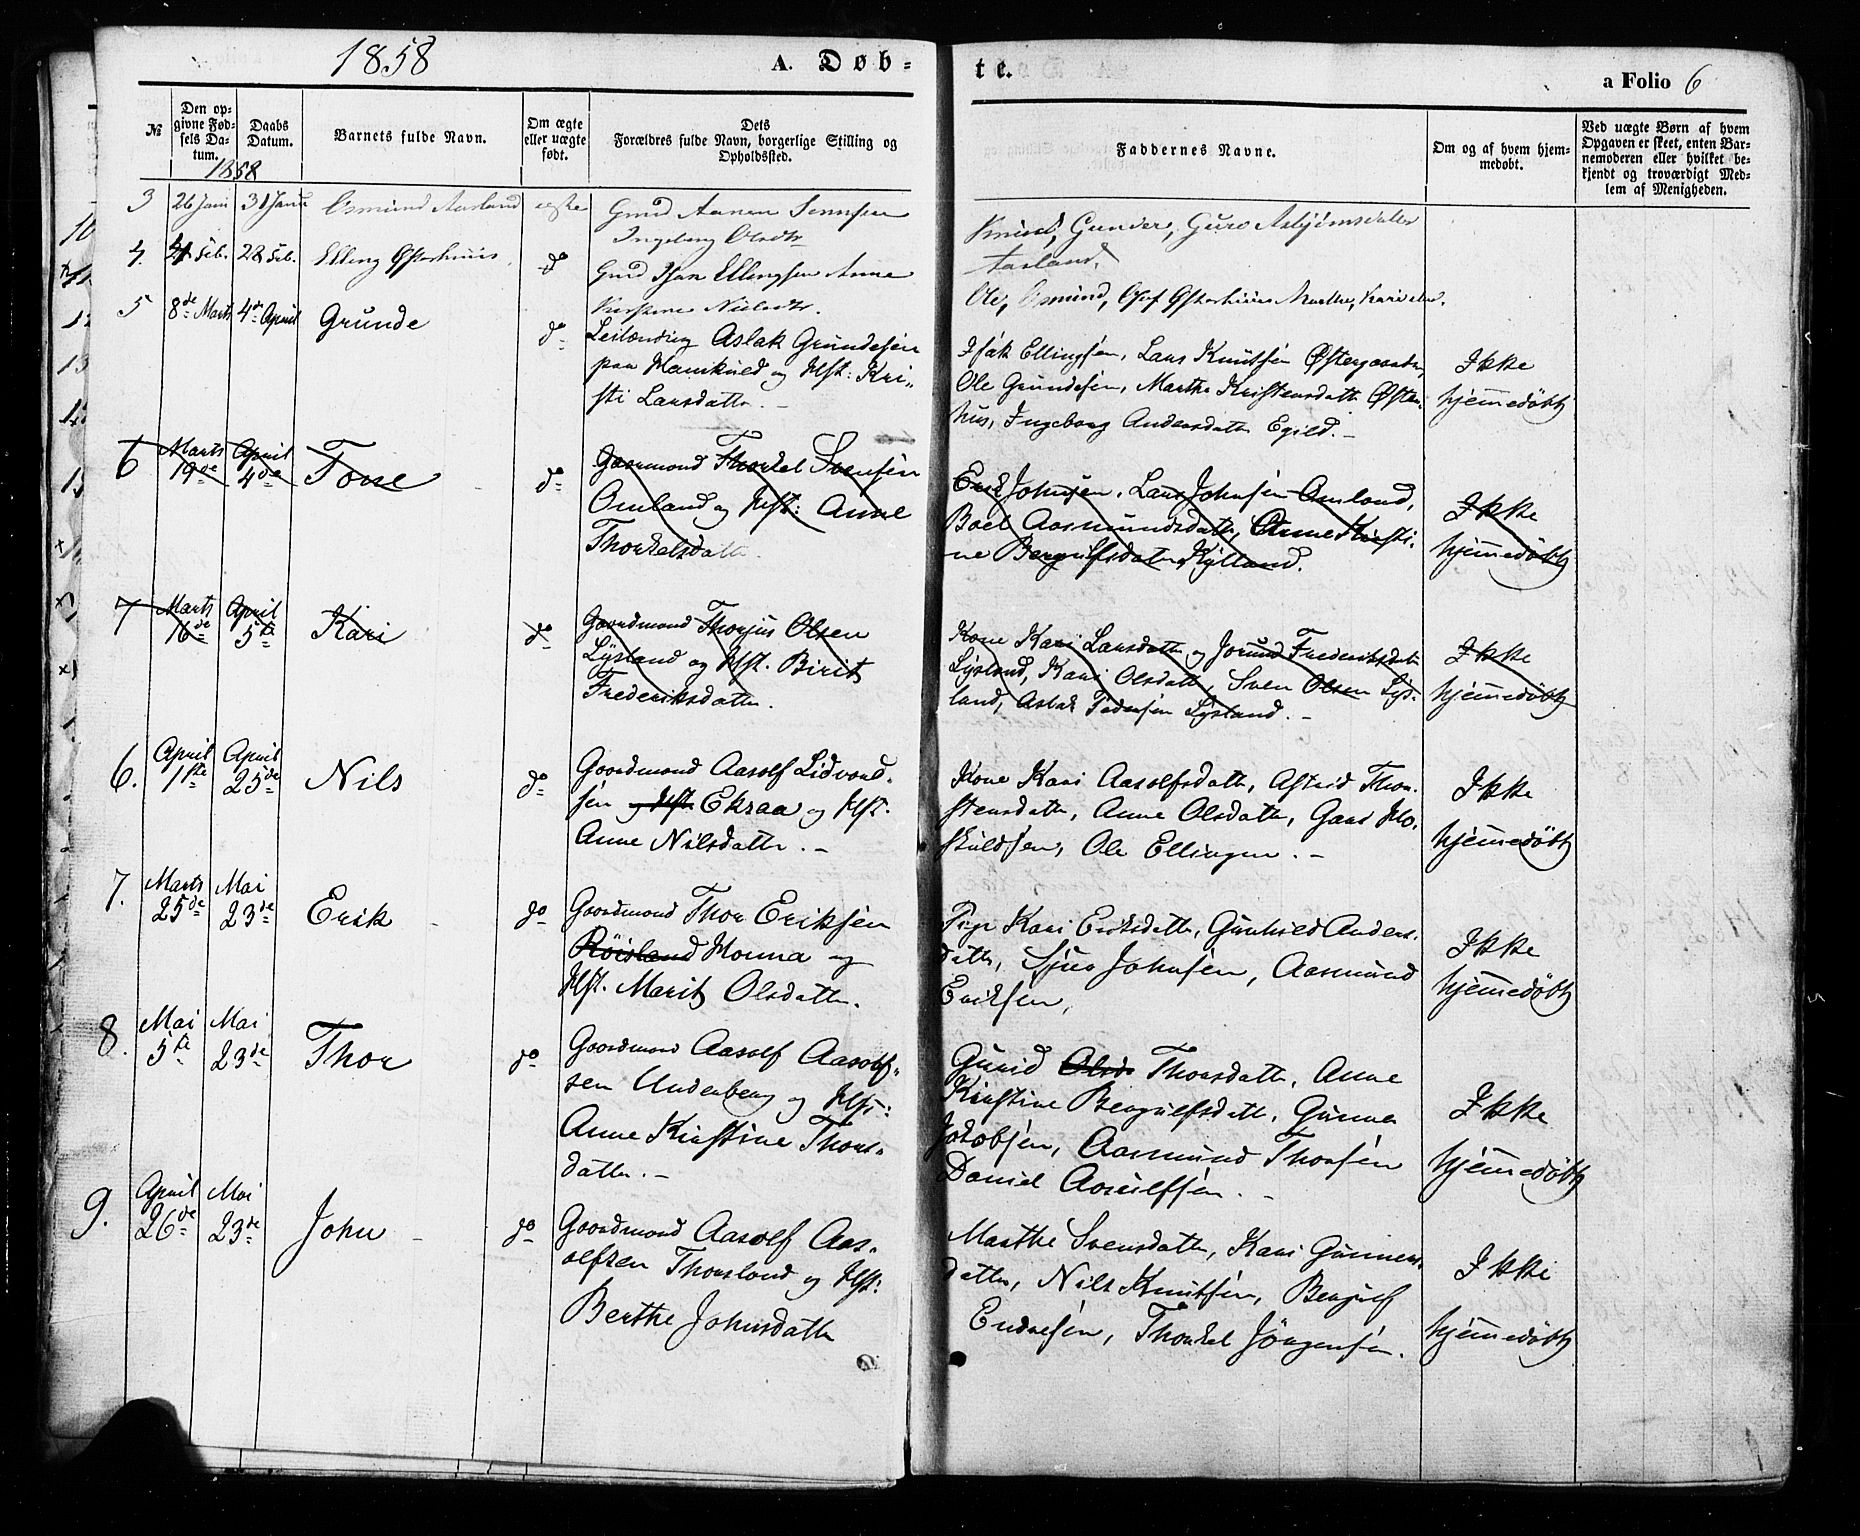 1858 A. Døb-
te. a Folio 6
№
Den op-
givne Fød-
sels Da-
tum.
1858
Daabs
Datum.
Barnets fulde Navn.
Om ægte
eller uægte
født.
Dets
Forældres fulde Navn, borgerlige Stilling og
Opholdssted.
Faddernes Navne.
Om og af hvem hjem-
medøbt.
Ved uægte Børn af hvem
Opgaven er skeet, enten Bar-
nemoderen eller hvilket be-
kjendt og troværdigt Med-
lem af Menigheden.
3 26 Janu 31 Janu Osmund Aasland ægte
Ingeborg Olsdtr
Knud, Gunder, Guro Asbjørnsdatter
Aasland,
4. Feb. 28 Feb. Elling Østerhuus do
Gmd Isak Ellingsen Anne
Nielsdtr.
Ole, Osmund, Østerhuus Marthe, Kari
5 8de Marts 4de April Grunde do
Leilænding Aslak Grundesen
paa Hamkild og Hst: Kri-
sti Larsdatter. -
Isak Ellingsen, Lars Knutsen Østergaarden,
Ole Grundesen, Marthe Kristensdatter Øster-
hus, Ingeborg Andersdatter Egild. -
Ikke
hjemmedøbt
6 Marts
19de
April
4de
Tone do
Gaardmand Thorkel Svensen
Omland og Hst: Anne
Thorkelsdatter.
Erik Johnsen, Lars Johnsen Omland,
Boel Aasmundsdatter, Anne Kirsti-
ne Bergulfsdatter Kylland.
Ikke
hjemmedøbt
7 Marts
16de
April
5te
Kari do
Gaardmand Thorjus Olsen
Lysland og Hst. Birit
Frederiksdatter.
Kone Kari Larsdatter og Jorund Frederiksdatter
Lysland, Kari Olsdatter, Sven Olsen Lys-
land, Aslak Pedersen Lysland. -
Ikke
hjemmedøbt
6. April
1ste
April
25de
Nils do
Gaardmand Aasolf Lidvord-
sen og Hst. Eksaa og Hst.
Anne Nilsdatter. -
Kone Kari Aasolfsdatter, Astrid Thor-
stensdatter, Anne Olsdatter, Gaas Ho-
skuldsen, Ole Ellingsen. -
Ikke
hjemmedøbt
7. Marts
25de
Mai
23de
Erik do
Gaardmand Thor Eriksen
Røisland Homma og
Hst. Marit Olsdatter.
Pige Kari Eriksdatter, Gunhild Anders-
datter, Sjur Johnsen, Aasmund
Eriksen,
Ikke
hjemmedøbt
8. Mai
5te
Mai
23de
Thor do
Gaardmand Aasolf Aasolf-
sen Underberg og Hst:
Anne Kirstine Thors-
datter. -
Gurid Olsd Thorsdatter, Anne
Kirstine Bergulfsdatter, Gunner
Jakobsen, Aasmund Thorsen
Daniel Aasulfsen. -
Ikke
hjemmedøbt
9. April
26de
Mai
23de
John do
Gaardmand Aasolf Aas-
olfsen Thorsland og Hst:
Berthe Johnsdatter
Marthe Svensdatter, Kari Gunners-
datter, Nils Knutsen, Bergulf
Endresen, Thorkel Jörgensen.
Ikke
hjemmedøbt